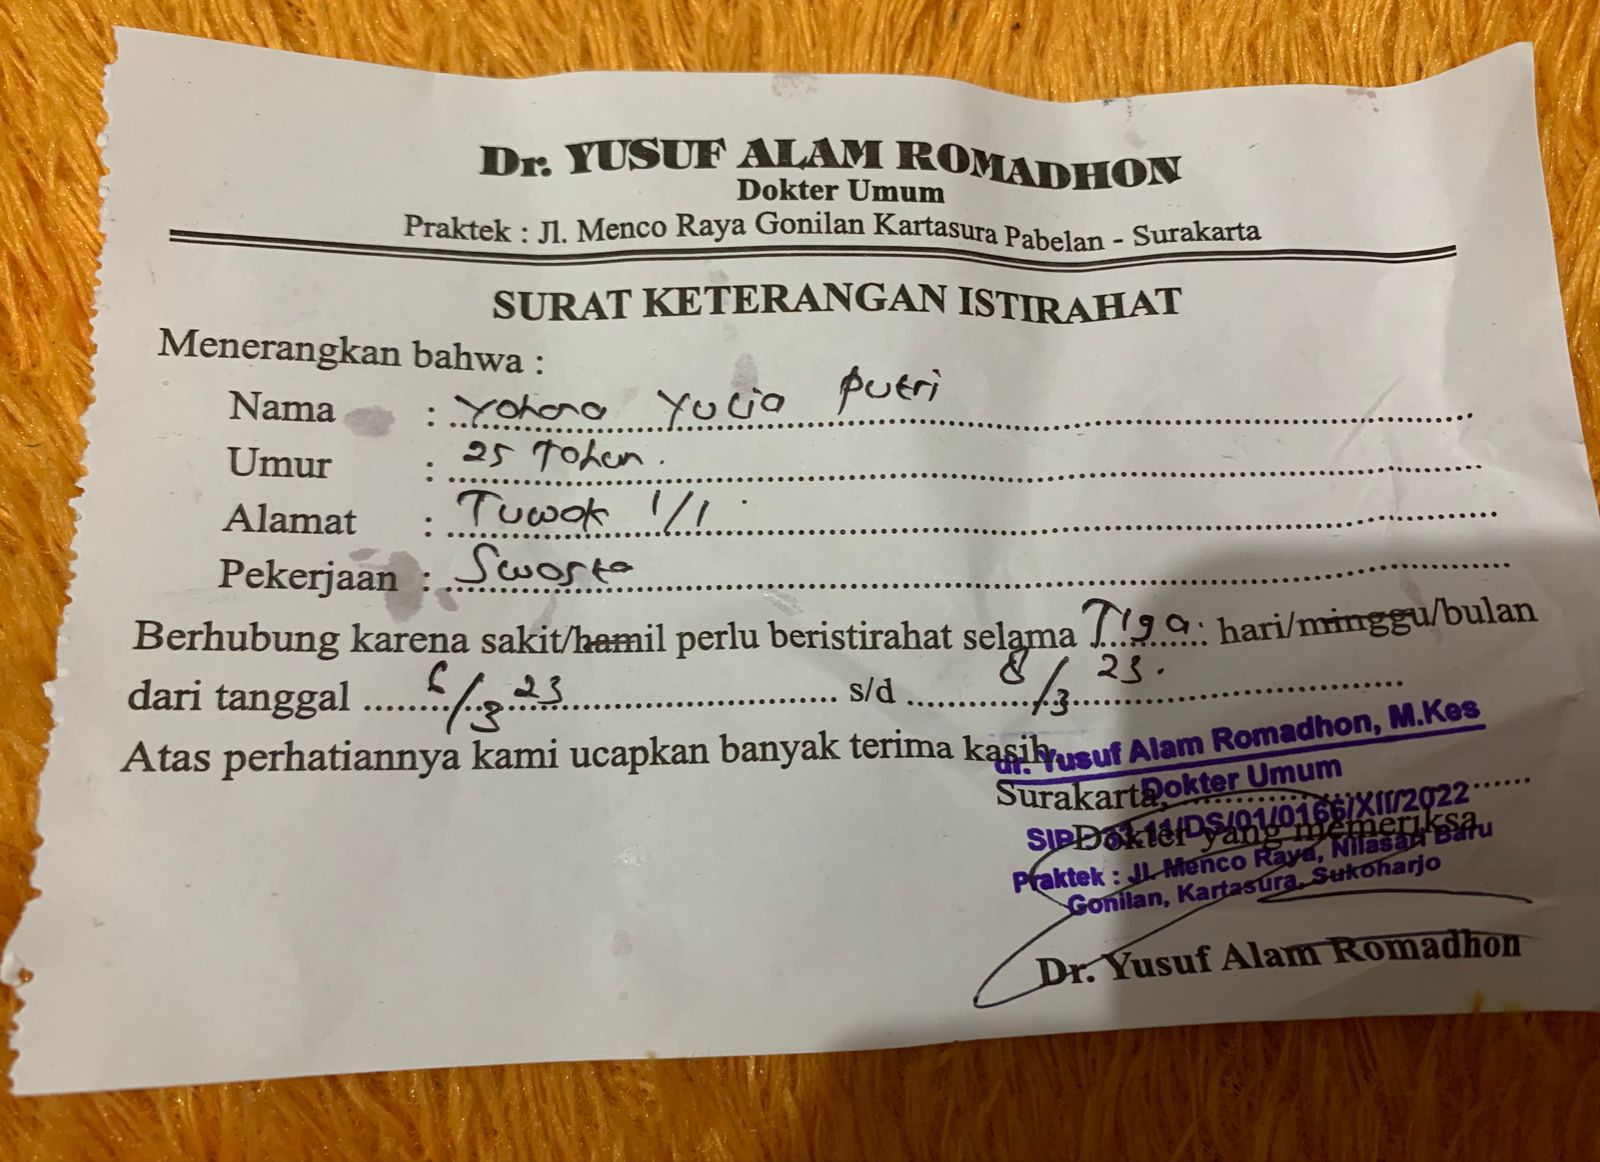 Dr. YUSUF ALAM ROMADHON
Dokter Umum
Praktek : Jl. Menco Raya Gonilan Kartasura Pabelan - Surakarta
SURAT KETERANGAN ISTIRAHAT
Menerangkan bahwa :
Nama : Yohana Yulia Putri
Umur : 25 Tahun.
Alamat : Tuwak 1/1
Pekerjaan : Swasta
Berhubung karena sakit/hamil perlu beristirahat selama Tiga hari/minggu/bulan
dari tanggal 6/3 23 s/d 8/3 23.
Atas perhatiannya kami ucapkan banyak terima kasih.
dr. Yusuf Alam Romadhon, M.Kes
Dokter Umum
Surakarta,
SIP 33.11/DS/01/0166/XII/2022
Dokter yang memeriksa
Praktek : Jl. Menco Raya, Nilasari Baru
Gonilan, Kartasura, Sukoharjo
Dr. Yusuf Alam Romadhon